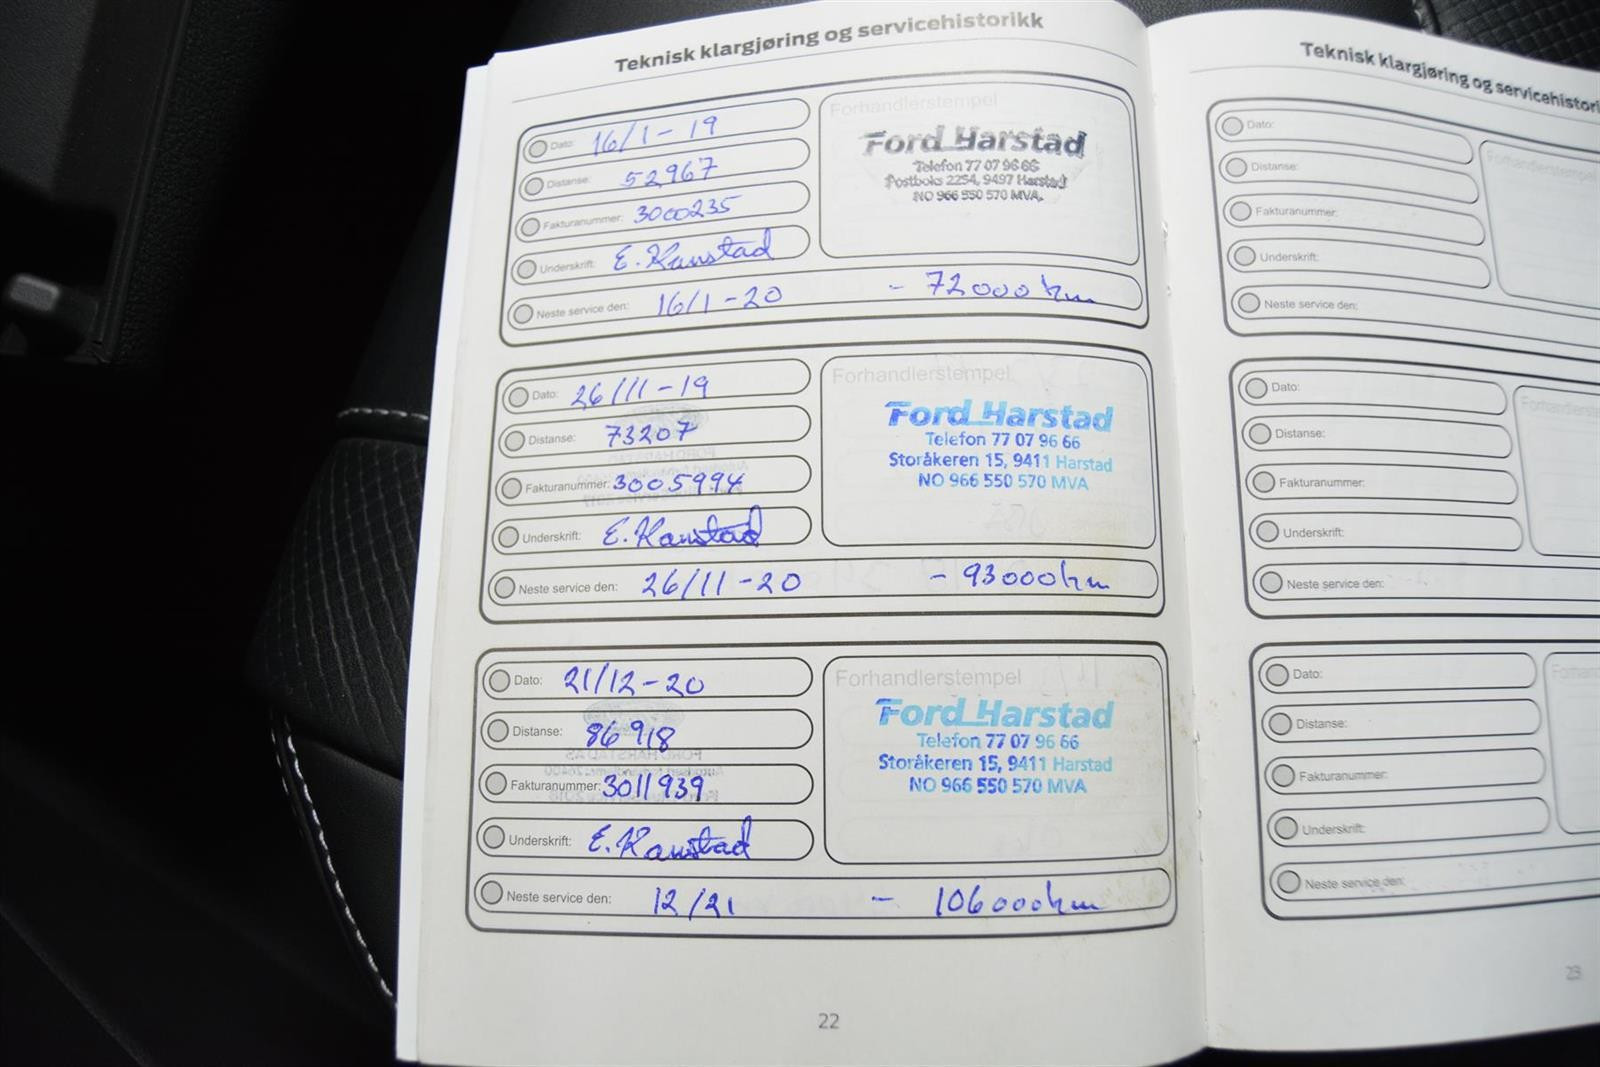 Teknisk klargjøring og servicehistorikk
Dato: 16/1-19
Distanse: 52967
Fakturanummer: 3000235
Underskrift: E. Kanstad
Neste service den: 16/1-20 - 72000 km
Forhandlerstempel
Ford Harstad
Telefon 77 07 96 66
Postboks 2254, 9497 Harstad
NO 966 550 570 MVA.
Dato: 26/11-19
Distanse: 73207
Fakturanummer: 3005994
Underskrift: E. Kanstad
Neste service den: 26/11-20 - 93000 km
Forhandlerstempel
Ford Harstad
Telefon 77 07 96 66
Storåkeren 15, 9411 Harstad
NO 966 550 570 MVA
Dato: 21/12-20
Distanse: 86918
Fakturanummer: 3011939
Underskrift: E. Kanstad
Neste service den: 12/21 - 106000 km
Forhandlerstempel
Ford Harstad
Telefon 77 07 96 66
Storåkeren 15, 9411 Harstad
NO 966 550 570 MVA
22
Teknisk klargjøring og servicehistori
Dato:
Distanse:
Fakturanummer:
Underskrift:
Neste service den:
Forhandlerstempel
Dato:
Distanse:
Fakturanummer:
Underskrift:
Neste service den:
Forhandlerste
Dato:
Distanse:
Fakturanummer:
Underskrift:
Neste service den:
Forhand
23